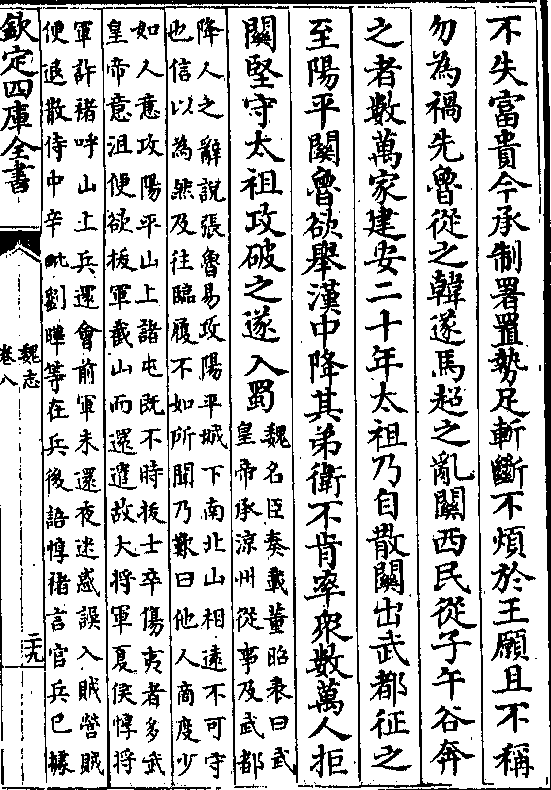 不失富貴今承制署置勢足斬斷不煩於王願且不稱
勿為禍先魯從之韓遂馬超之亂關西民從子午谷奔
之者數萬家建安二十年太祖乃自散關出武都征之
至陽平關魯欲舉漢中降其弟衛不肯率衆數萬人拒
關堅守太祖攻破之遂入蜀
魏名臣奏載董昭表曰武
皇帝承涼州從事及武都
降人之辭說張魯易攻陽平城下南北山相遠不可守
也信以為然及往臨履不如所聞乃歎曰他人商度少
如人意攻陽平山上諸屯既不時拔士卒傷夷者多武
皇帝意沮便欲拔軍截山而還遣故大將軍夏侯惇將
軍許禇呼山上兵還會前軍未還夜迷惑誤入賊營賊
便退散侍中辛毗劉曄等在兵後語惇禇言官兵已據
欽定四庫全書
魏志
卷八
二九